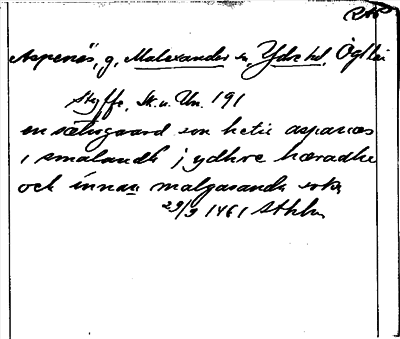 Aspenäs, g, Malexander sn, Ydre hd, Ögl län
Styffe, Sk. u. Un. 191
en sætisgaard som hetir aspanæs
i smalandh j ydhre hæradhe
och innan malgxsandh sokn
29/3 1461 Sthlm